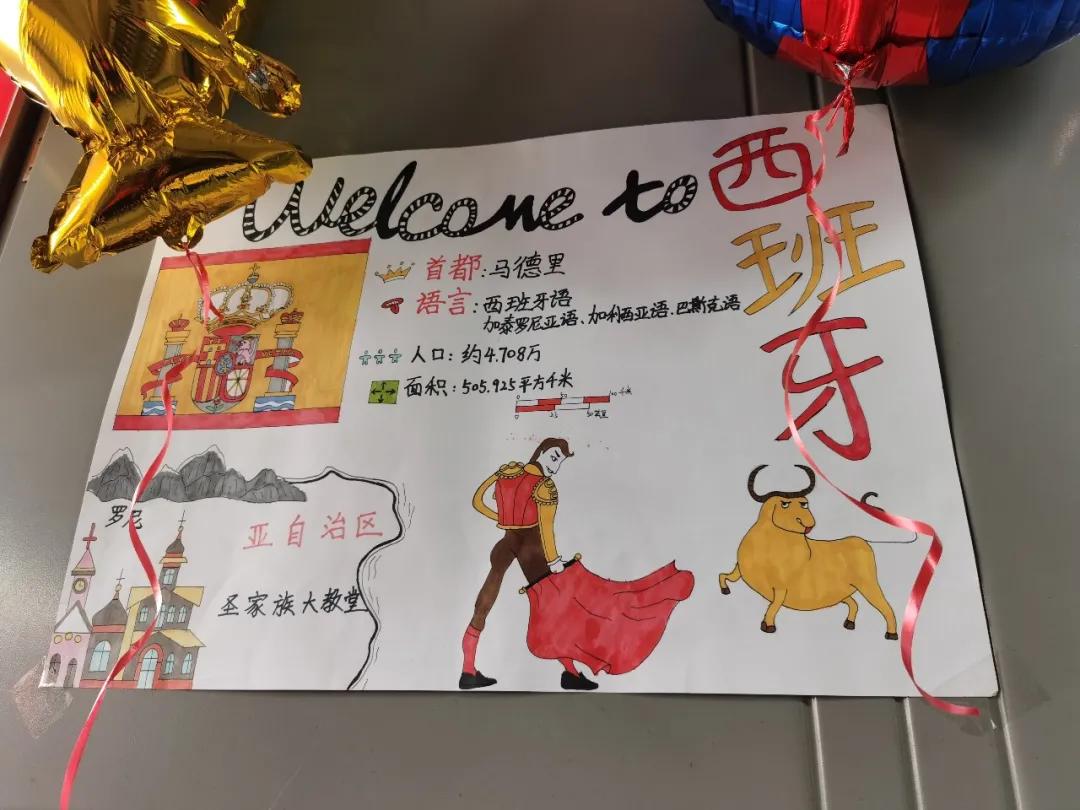 Welcome to 西班牙
首都:马德里
语言:西班牙语
加泰罗尼亚语、加利西亚语.巴斯克语
人口:约4.708万
面积:505.925平方千米
罗尼
亚自治区
圣家族大教堂